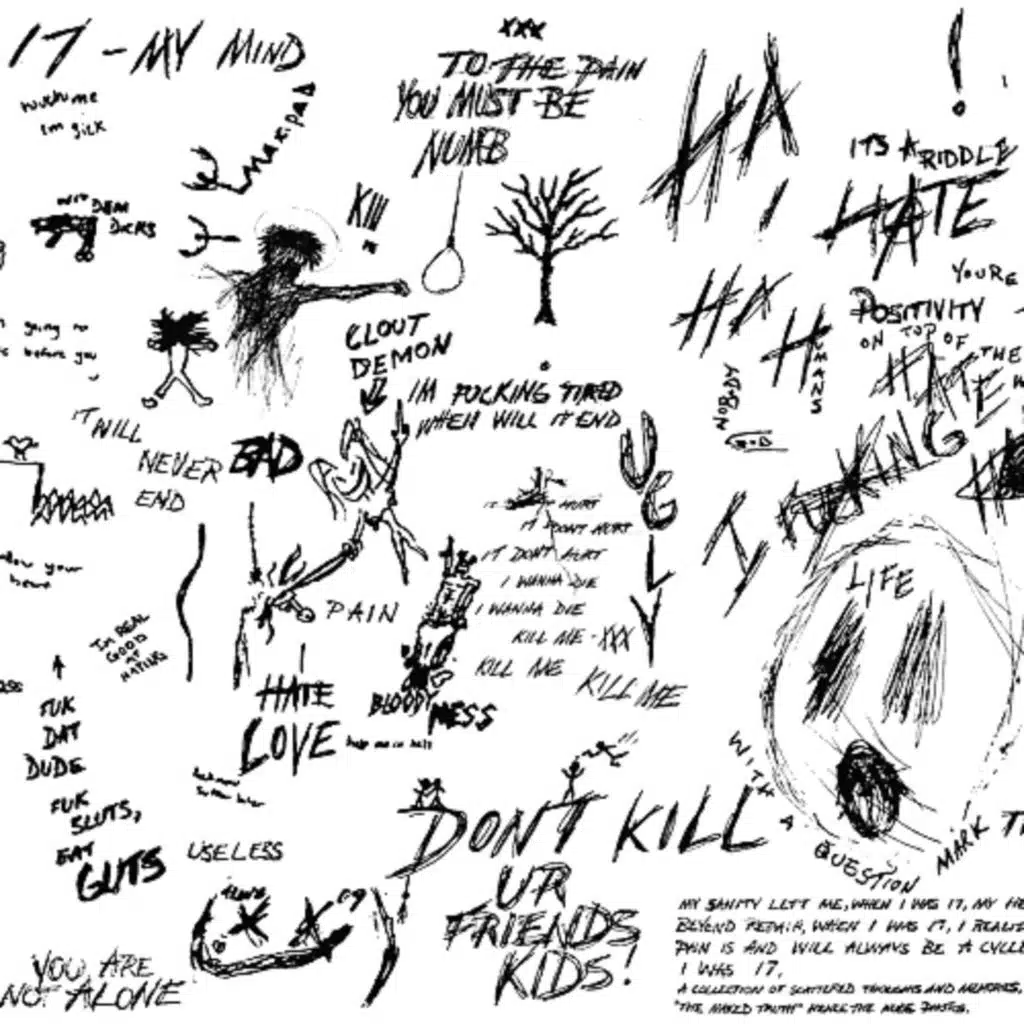 17 - MY MIND
im sick
MAKIPAD
WIT DEM
DICKS
XXX
TO THE PAIN
YOU MUST BE
NUMB
Kill
me
HA
HA
HA
!
ITS A RIDDLE
HATE
YOURE
POSITIVITY
ON TOP OF
HATE
THE
HUMANS
NOBODY
GOD
I FUCKING
going no
before you
CLOUT
DEMON
IM FUCKING TIRED
WHEN WILL IT END
IT WILL
NEVER
END
BAD
UGLY
IT HURT
IT DONT HURT
IT DONT HURT
I WANNA DIE
I WANNA DIE
KILL ME - XXX
KILL ME
KILL ME
your
heart
PAIN
IM REAL
GOOD
AT
HATING
FUK
DAT
DUDE
FUK
SLUTS,
EAT
GUTS
HATE
LOVE
BLOODY
MESS
USELESS
DONT KILL
UR
FRIENDS
KIDS!
LIFE
WITH A QUESTION MARK
YOU ARE
NOT ALONE
MY SANITY LEFT ME, WHEN I WAS 17, MY HE
BEYOND REPAIR, WHEN I WAS 17, I REALIZ
PAIN IS AND WILL ALWAYS BE A CYCLE
I WAS 17,
A COLLECTION OF SCATTERED THOUGHTS AND MEMORIES,
"THE NAKED TRUTH" HENCE THE NUDE PHOTOS.